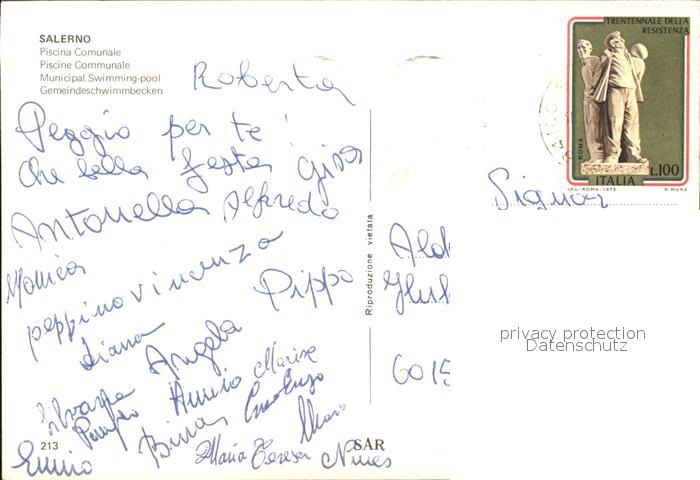 SALERNO
Piscina Comunale
Piscine Communale
Municipal Swimming-pool
Gemeindeschwimmbecken
Roberta
Peggio per te!
Che bella festa
Antonella Alfredo
Monica
peppino vincenza
Pippo
Diana
Angela
Silvana
Marisa
Pina
Ennio
Maria Teresa
213
SAR
Riproduzione vietata
TRENTENNALE DELLA
RESISTENZA
ROMA
L.100
ITALIA
I.P.S.-ROMA-1975
R. MURA
Signor
Ald
6015
privacy protection
Datenschutz